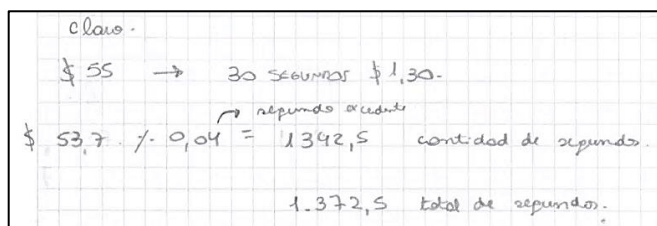 Claro.
$ 55 → 30 SEGUNDOS $ 1,30.
segundo excedente
$ 53,7 ./. 0,04 = 1342,5 cantidad de segundo.
1.372,5 total de segundos.